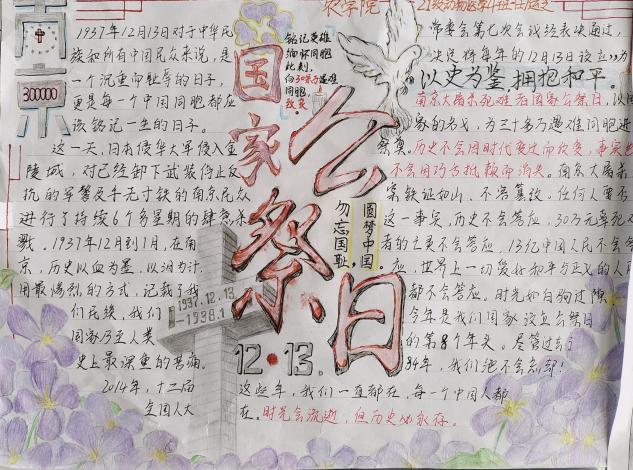 农学院
南京
300000
1937年12月13日对于中华民
族和所有中国民众来说,是
一个沉重而耻辱的日子,
更是每一个中国同胞都应
该铭记一生的日子。
这一天,日本侵华大军侵入金
陵城,对已经卸下武装停止反
抗的军警及手无寸铁的南京民众
进行了持续6个多星期的肆意杀
戮。1937年12月到1月,在南
京,历史以血为墨,以泪为汁,
用最惨烈的方式,记载了我
们民族,我们
国家乃至人类
史上最深重的苦痛。
2014年,十二届
全国人大
铭记英雄
缅怀同胞
此刻,
向30万遇难
同胞
致哀。
国家公祭日
12·13.
1937.12.13.
-1938.1
勿忘国耻,
圆梦中国。
常委会第七次会议经表决通过,
决定将每年的12月13日设立为
以史为鉴,拥抱和平。
南京大屠杀死难者国家公祭日,以国
家的名义,为三十多万遇难同胞进行
祭奠。历史不会因时代变迁而改变,事实也
不会因巧舌抵赖而消失。南京大屠杀
案铁证如山、不容篡改。任何人要否
这一事实,历史不会答应,30万无辜死
者的亡灵不会答应,13亿中国人民不会答
应,世界上一切爱好和平与正义的人
都不会答应。时光如白驹过隙
今年是我们国家设立公祭日
的第8个年头。尽管过去
84年,我们绝不会忘却!
这些年,我们一直都在,每一个中国人都
在。时光会流逝,但历史永存。